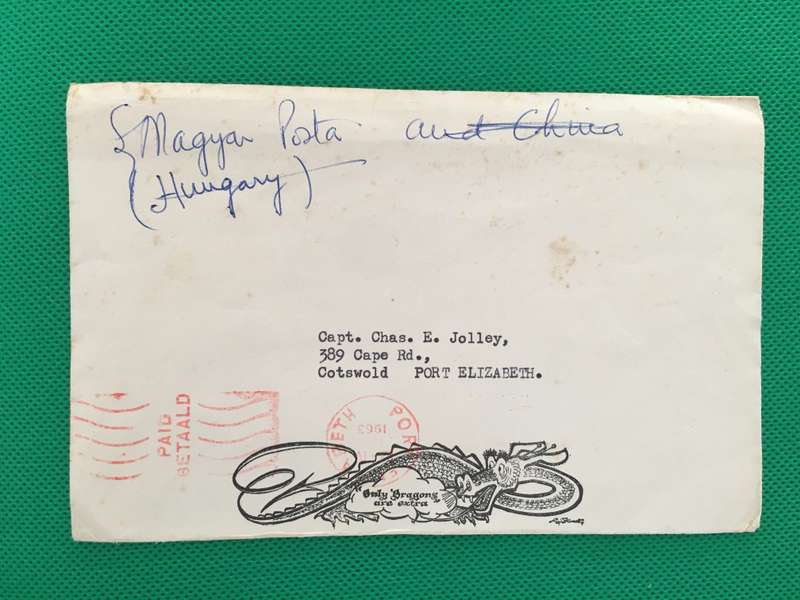 Magyar Posta and China
(Hungary)
Capt. Chas. E. Jolley,
389 Cape Rd.,
Cotswold PORT ELIZABETH.
PAID
BETAALD
PORT
1963
"Only Dragons
are extra